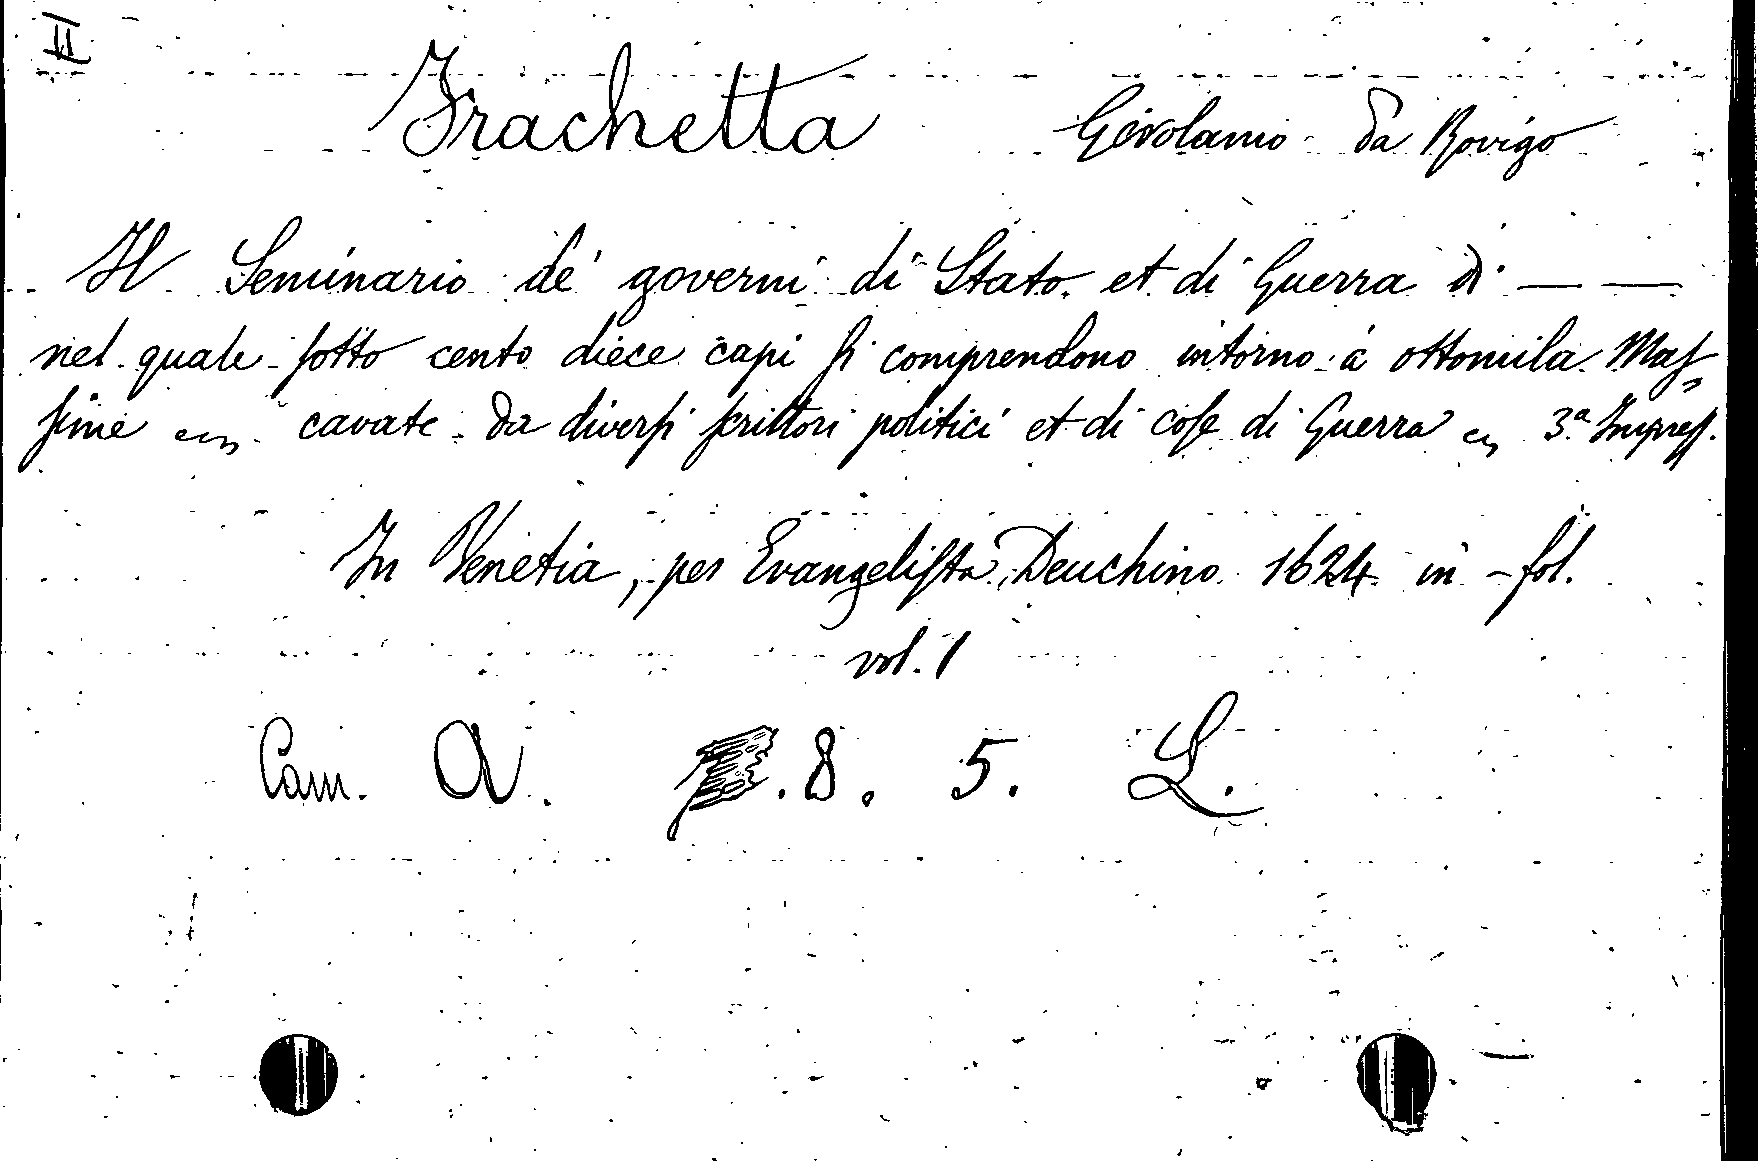 II
Frachetta Girolamo da Rovigo
Il Seminario de' governi di Stato et di Guerra di — —
nel quale ſotto cento diece capi ſi comprendono intorno à ottomila Maſ=
ſime cavate da diverſi ſcrittori politici et di coſe di Guerra 3.a Impreſſ.
In Venetia, per Evangeliſta Deuchino 1624 in-fol.
vol. 1
Cam. A. .8. 5. L.